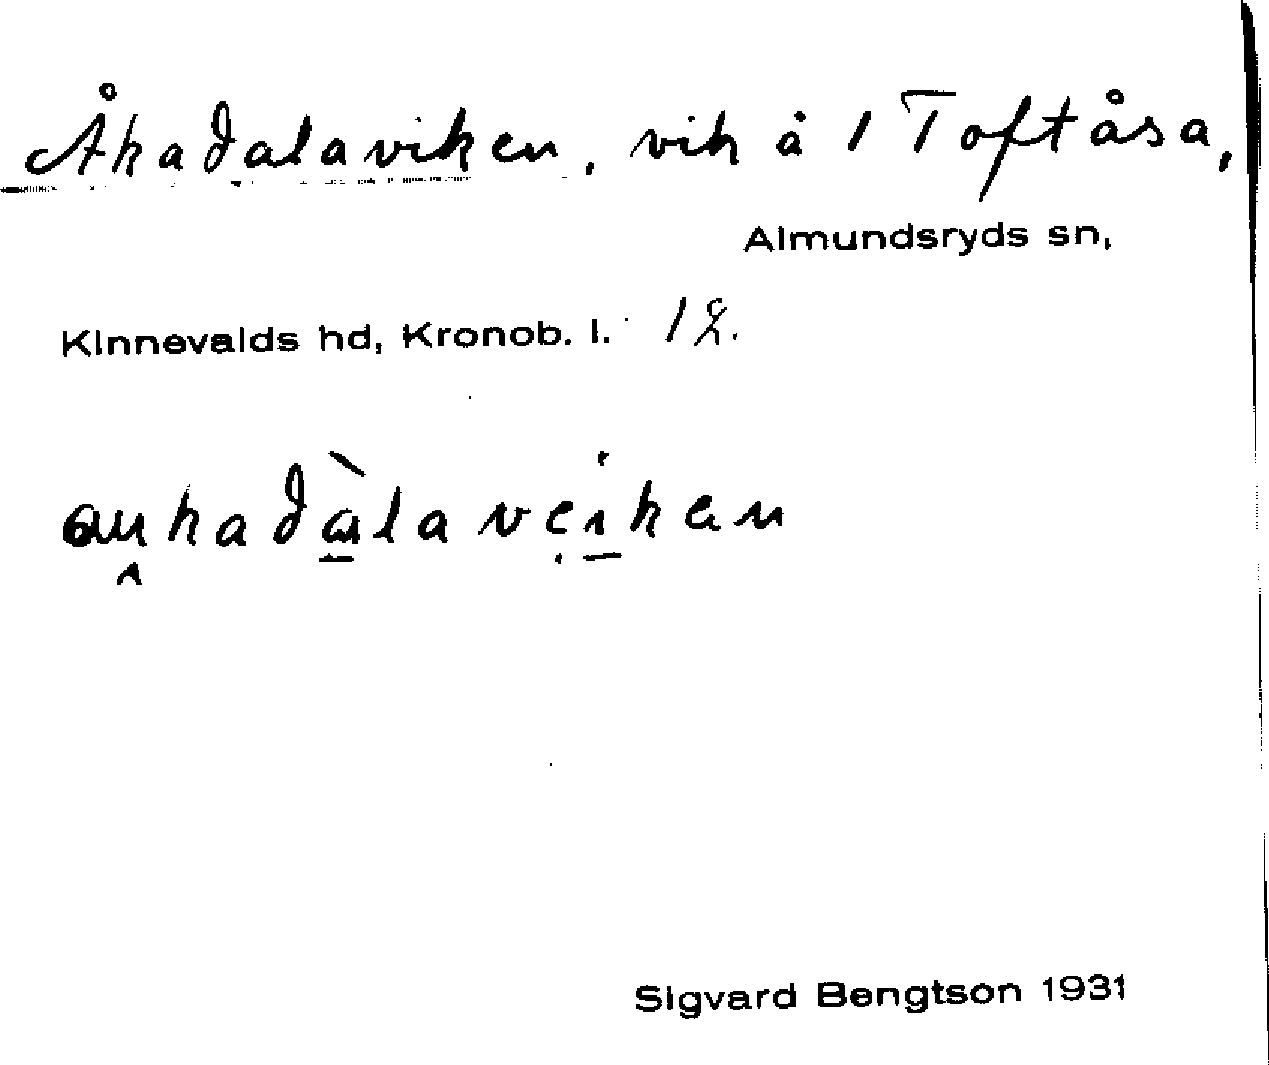 Åkadalaviken, vik å 1 Toftåsa,
Almundsryds sn,
Kinnevalds hd, Kronob. l.
Sigvard Bengtson 1931